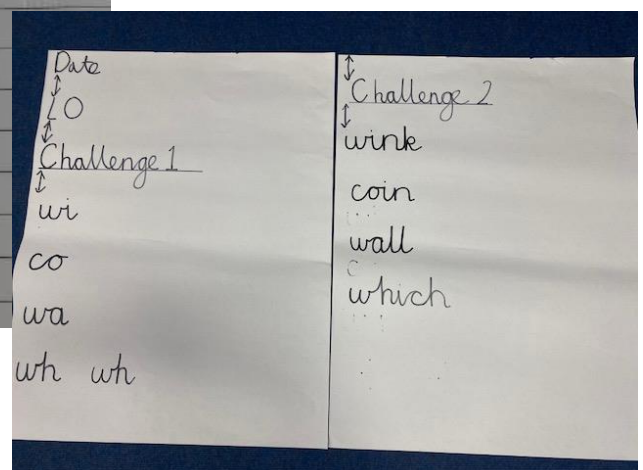 Date
LO
Challenge 1
wi
co
wa
wh wh
Challenge 2
wink
coin
wall
which